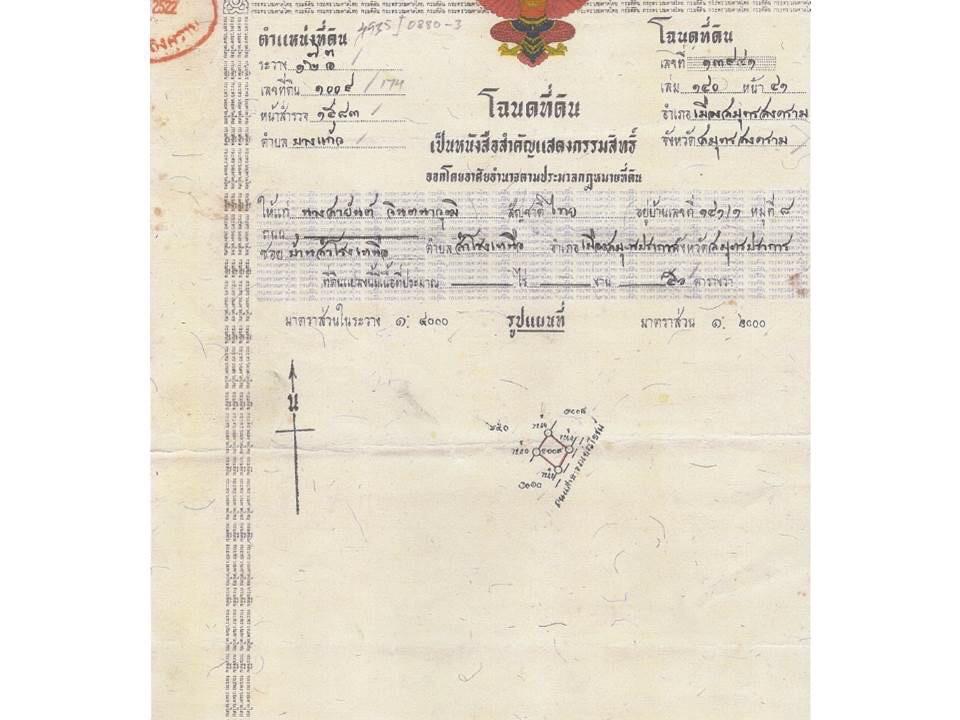 2522
4935 I 0880-3
ตำแหน่งที่ดิน
ระวาง
เลขที่ดิน ๑๐๐๙ / 174
หน้าสำรวจ ๑๕๘๓
ตำบล บางแก้ว
โฉนดที่ดิน
เลขที่ ๑๓๙๔๑
เล่ม ๑๔๐ หน้า ๔๑
อำเภอ เมืองสมุทรสงคราม
จังหวัด สมุทรสงคราม
โฉนดที่ดิน
เป็นหนังสือสำคัญแสดงกรรมสิทธิ์
ออกโดยอาศัยอำนาจตามประมวลกฎหมายที่ดิน
ให้แก่ นางสายันต์ จินตนาวุฒิ สัญชาติ ไทย อยู่บ้านเลขที่ ๑๔๑/๑ หมู่ที่ ๘
ถนน
ซอย บ้านสำโรงเหนือ ตำบล สำโรงเหนือ อำเภอ เมืองสมุทรปราการ จังหวัด สมุทรปราการ
ที่ดินแปลงนี้มีเนื้อที่ประมาณ ไร่ งาน ๕๐ ตารางวา
มาตราส่วนในระวาง ๑: ๔๐๐๐ รูปแผนที่ มาตราส่วน ๑: ๒๐๐๐
น
๑๐๐๙